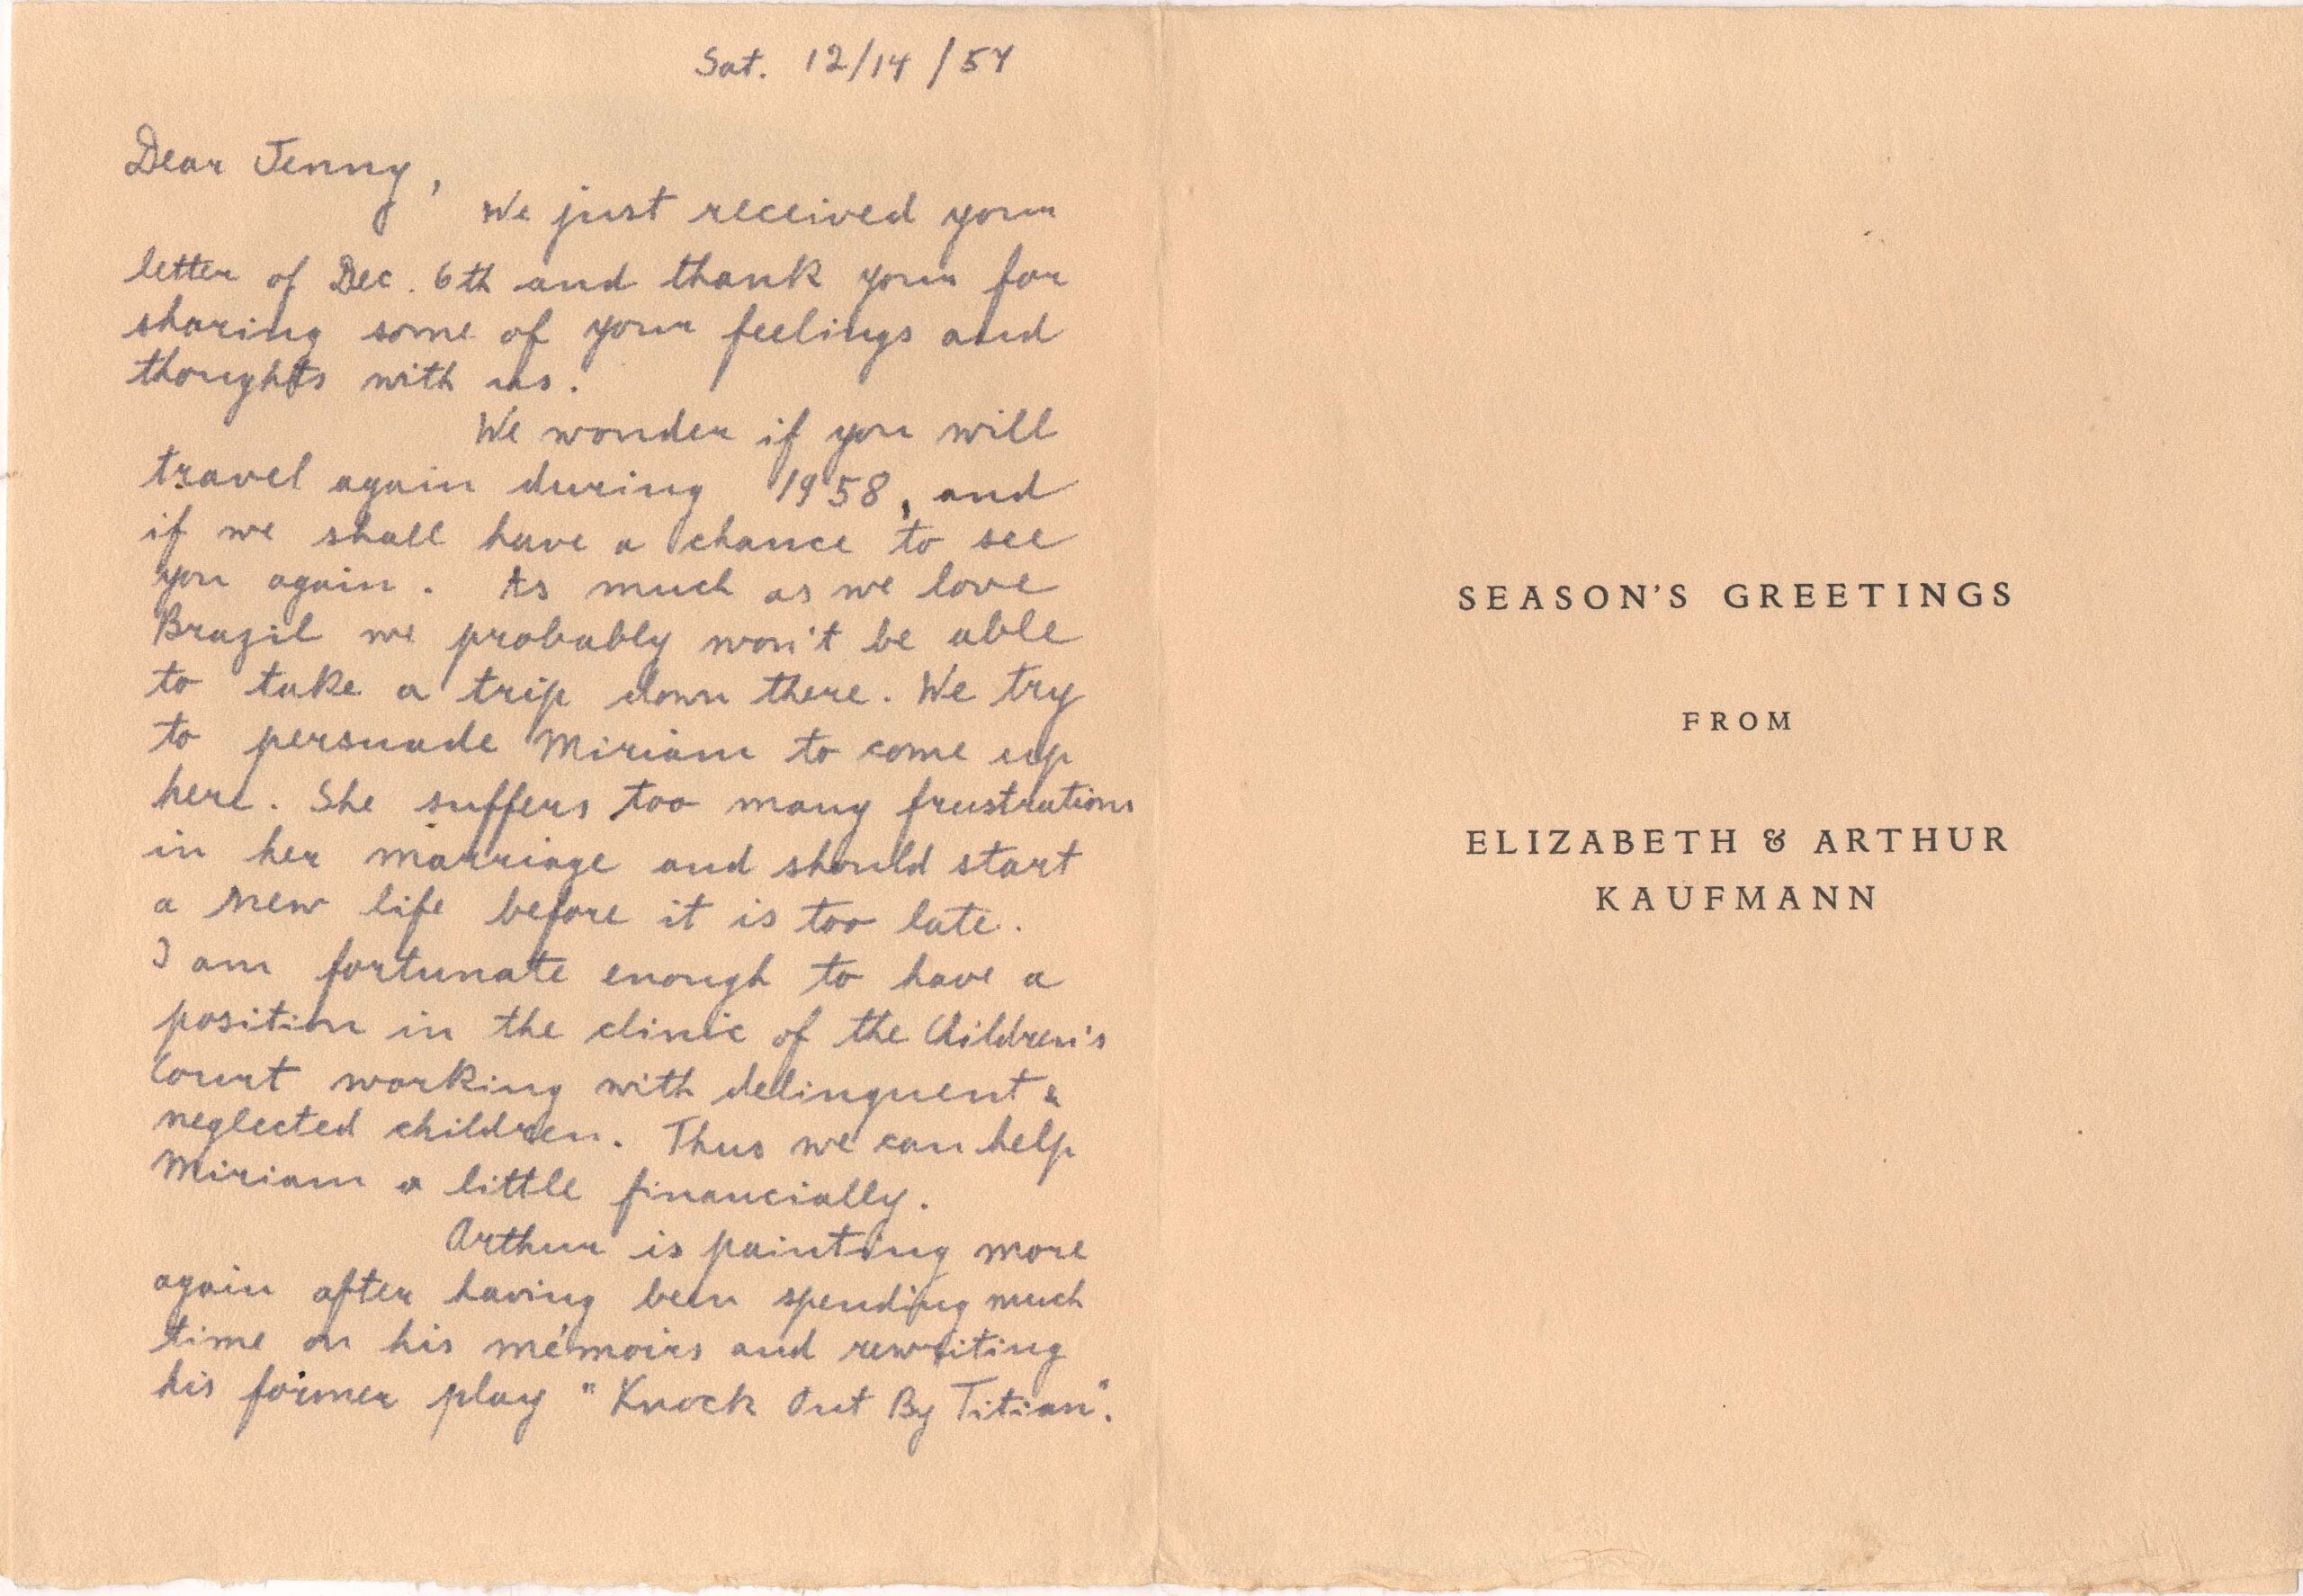 Sat. 12/14/57
Dear Jenny,
We just received your
letter of Dec. 6th and thank your for
sharing some of your feelings and
thoughts with us.
We wonder if you will
travel again during 1958, and
if we shall have a chance to see
you again. As much as we love
Brazil we probably won't be able
to take a trip down there. We try
to persuade Miriam to come up
here. She suffers too many frustrations
in her marriage and should start
a new life before it is too late.
I am fortunate enough to have a
position in the clinic of the Children's
Court working with delinquent &
neglected children. Thus we can help
Miriam a little financially.
Arthur is painting more
again after having been spending much
time on his mémoirs and rewriting
his former play "Knock Out By Titian".
SEASON'S GREETINGS
FROM
ELIZABETH & ARTHUR
KAUFMANN